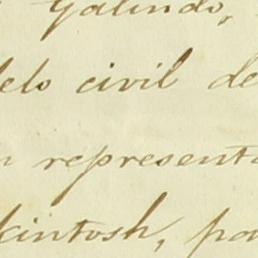 Galindo,
elo civil de
n representa
kintosh, po